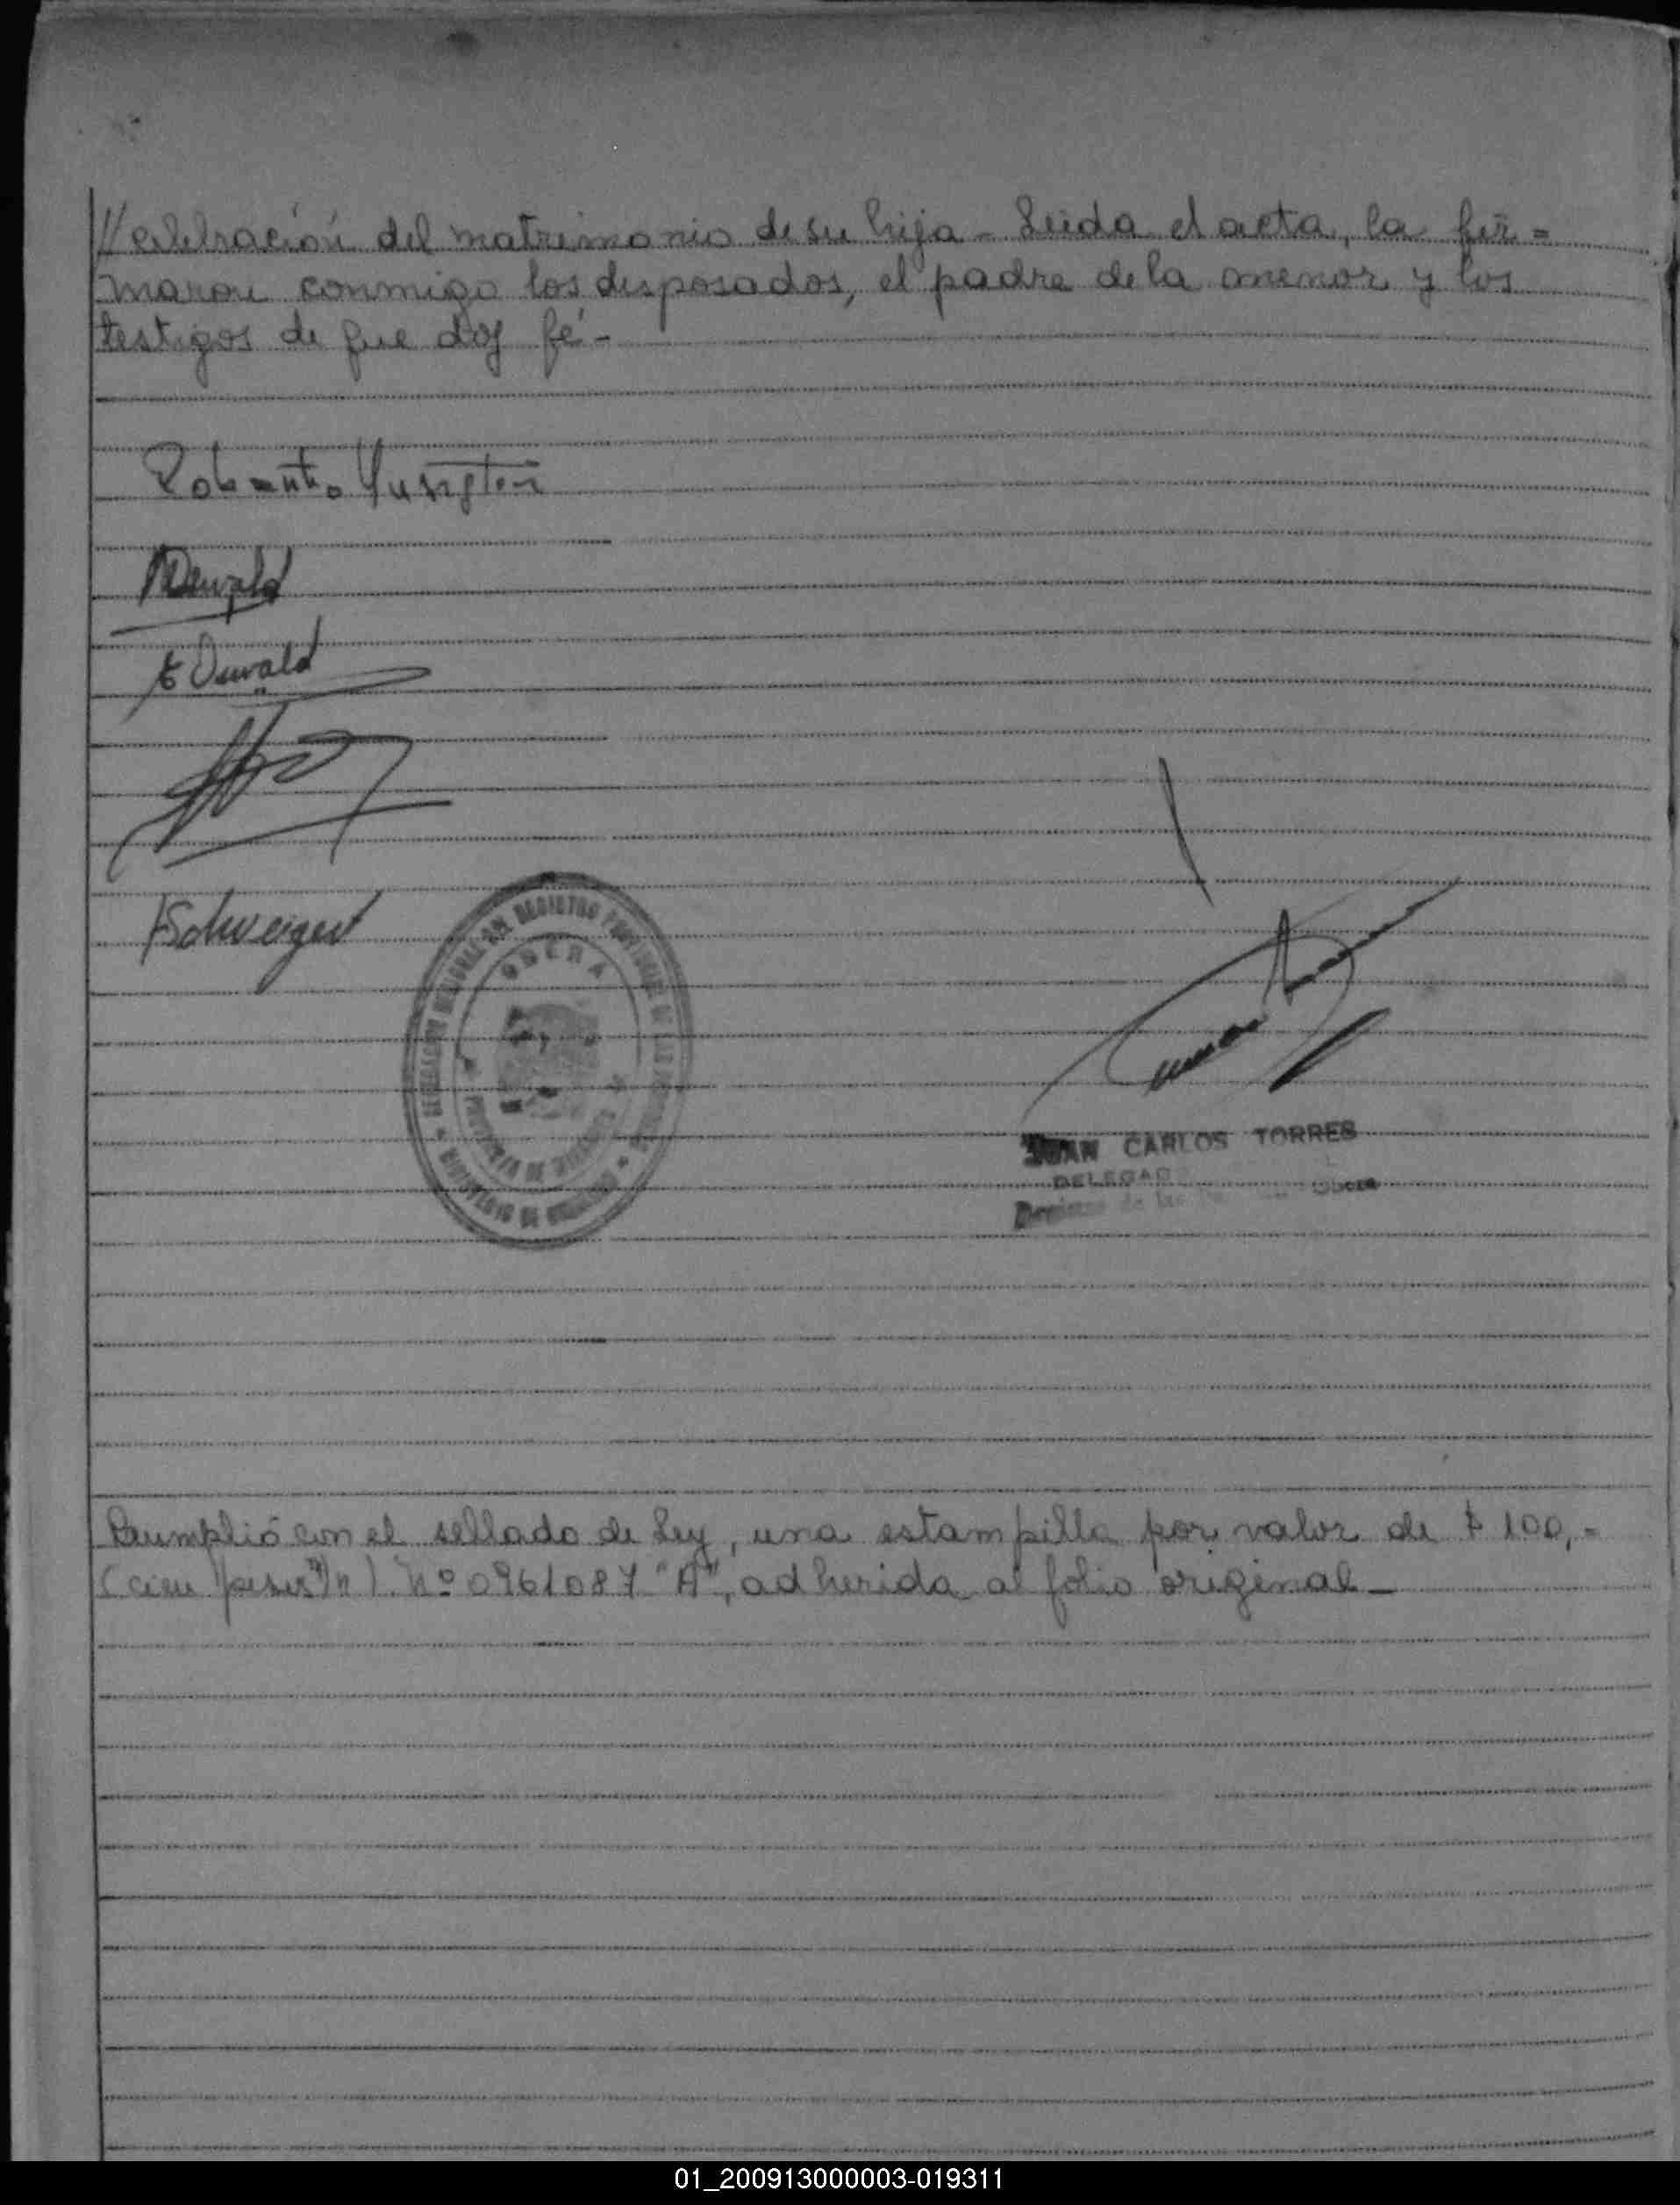 //celebración del matrimonio de su hija - Leída el acta, la fir=
maron conmigo los desposados, el padre de la menor y los
testigos de que doy fé -
Roberto
Oswald
E Oswald
Schweigert
REGISTRO PROVINCIAL DE LAS PERSONAS
OBERA
PROVINCIA DE MISIONES
MINISTERIO DE GOBIERNO
JUAN CARLOS TORRES
DELEGADO
Registro de las Obera
Cumplió con el sellado de Ley, una estampilla por valor de $ 100,-
(cien pesos m/n). Nº 0961087 "A", adherida al folio original -
01_200913000003-019311